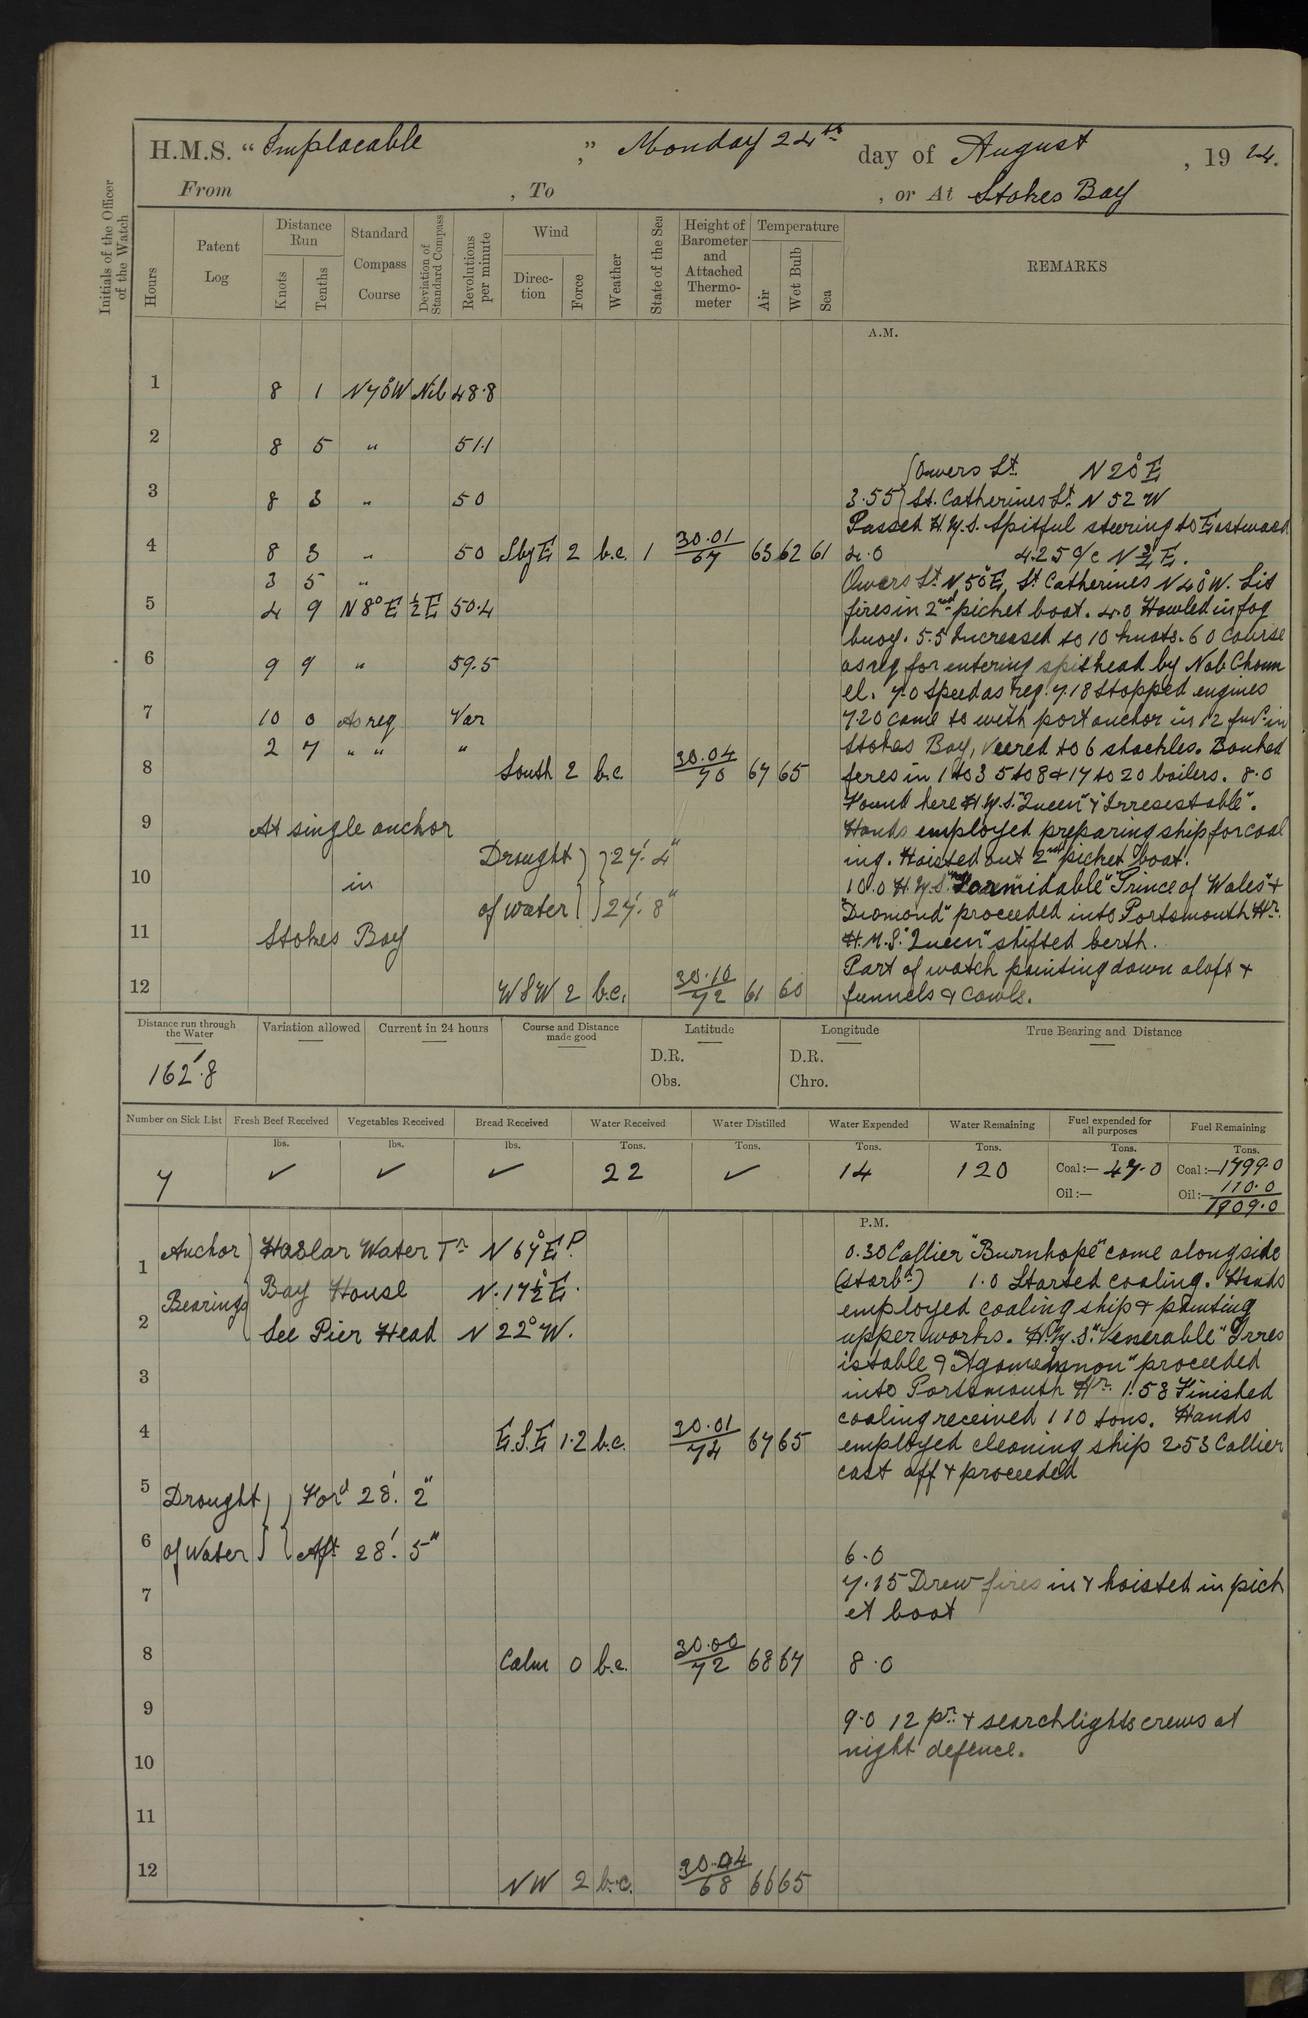 H.M.S. "Implacable," Monday 24th day of August, 1914.
From , To , or At Stokes Bay
Initials of the Officer of the Watch
Hours
Patent Log
Distance Run
Knots
Tenths
Standard Compass Course
Deviation of Standard Compass
Revolutions per minute
Wind
Direction
Force
Weather
State of the Sea
Height of Barometer and Attached Thermometer
Temperature
Air
Wet Bulb
Sea
REMARKS
A.M.
1 8 1 N70°W Nil 48.8
2 8 5 " 51.1
3 8 3 " 50
4 8 3 " 50 SbyE 2 b.c. 1 30.01/67 63 62 61
3 5 "
5 4 9 N8°E ½E 50.4
6 9 9 " 59.5
7 10 0 As req Var
2 7 " " "
8 South 2 b.c. 30.04/70 67 65
9 At single anchor
10 in
11 Stokes Bay
Draught of water } 27'. 4"
27'. 8"
12 WSW 2 b.c. 30.10/72 61 60
Owers Lt. N 20° E
3.55 St. Catherines Lt. N 52 W
Passed H.M.S. Spitful steering to Eastward
4.0 4.25 a/c N ¾ E.
Owers Lt. N 50°E, St Catherines N 40°W. Lit
fires in 2nd picket boat. 4.0 Hawled in fog
buoy. 5.5 Increased to 10 knots. 6 0 course
as req for entering spithead by Nab Chann
el. 7.0 Speed as req. 7.18 Stopped engines
7.20 came to with port anchor in 12 fms. in
Stokes Bay, veered to 6 shackles. Banked
fires in 1 to 3 5 to 8 & 17 to 20 boilers. 8.0
Found here H.M.S. "Queen" & "Irresestable".
Hands employed preparing ship for coal
ing. Hoisted out 2nd picket boat.
10.0 H.M.S. "Formidable" "Prince of Wales" &
"Diamond" proceeded into Portsmouth Hr.
H.M.S. "Queen" shifted berth.
Part of watch painting down aloft &
funnels & Cowls.
Distance run through the Water
162'.8
Variation allowed
Current in 24 hours
Course and Distance made good
Latitude
D.R.
Obs.
Longitude
D.R.
Chro.
True Bearing and Distance
Number on Sick List
7
Fresh Beef Received
lbs.
✓
Vegetables Received
lbs.
✓
Bread Received
lbs.
✓
Water Received
Tons.
22
Water Distilled
Tons.
✓
Water Expended
Tons.
14
Water Remaining
Tons.
120
Fuel expended for all purposes
Tons.
Coal:— 47.0
Oil:—
Fuel Remaining
Tons.
Coal:— 1799.0
Oil:— 110.0
1909.0
P.M.
1 Anchor Bearings } Haslar Water Tr N 67°E.
Bay House N. 17½°E.
2 See Pier Head N 22° W.
3
4 E.S.E 1.2 b.c. 30.01/74 67 65
5 Draught of Water } Ford 28'. 2"
6 Aft 28'. 5"
7
8 Calm 0 b.c. 30.00/72 68 67
9
10
11
12 NW 2 b.c. 30.04/68 66 65
0.30 Collier "Burnhope" came alongside
(starbd) 1.0 Started coaling. Hands
employed coaling ship & painting
upper works. H.M.S. "Venerable" Irres
istable & "Agamemnon" proceeded
into Portsmouth Hr. 1.58 Finished
coaling received 110 tons. Hands
employed cleaning ship 2.53 Collier
cast off & proceeded
6.0
7.15 Drew fires in & hoisted in pick
et boat
8.0
9.0 12 pr. & searchlights crews at
night defence.